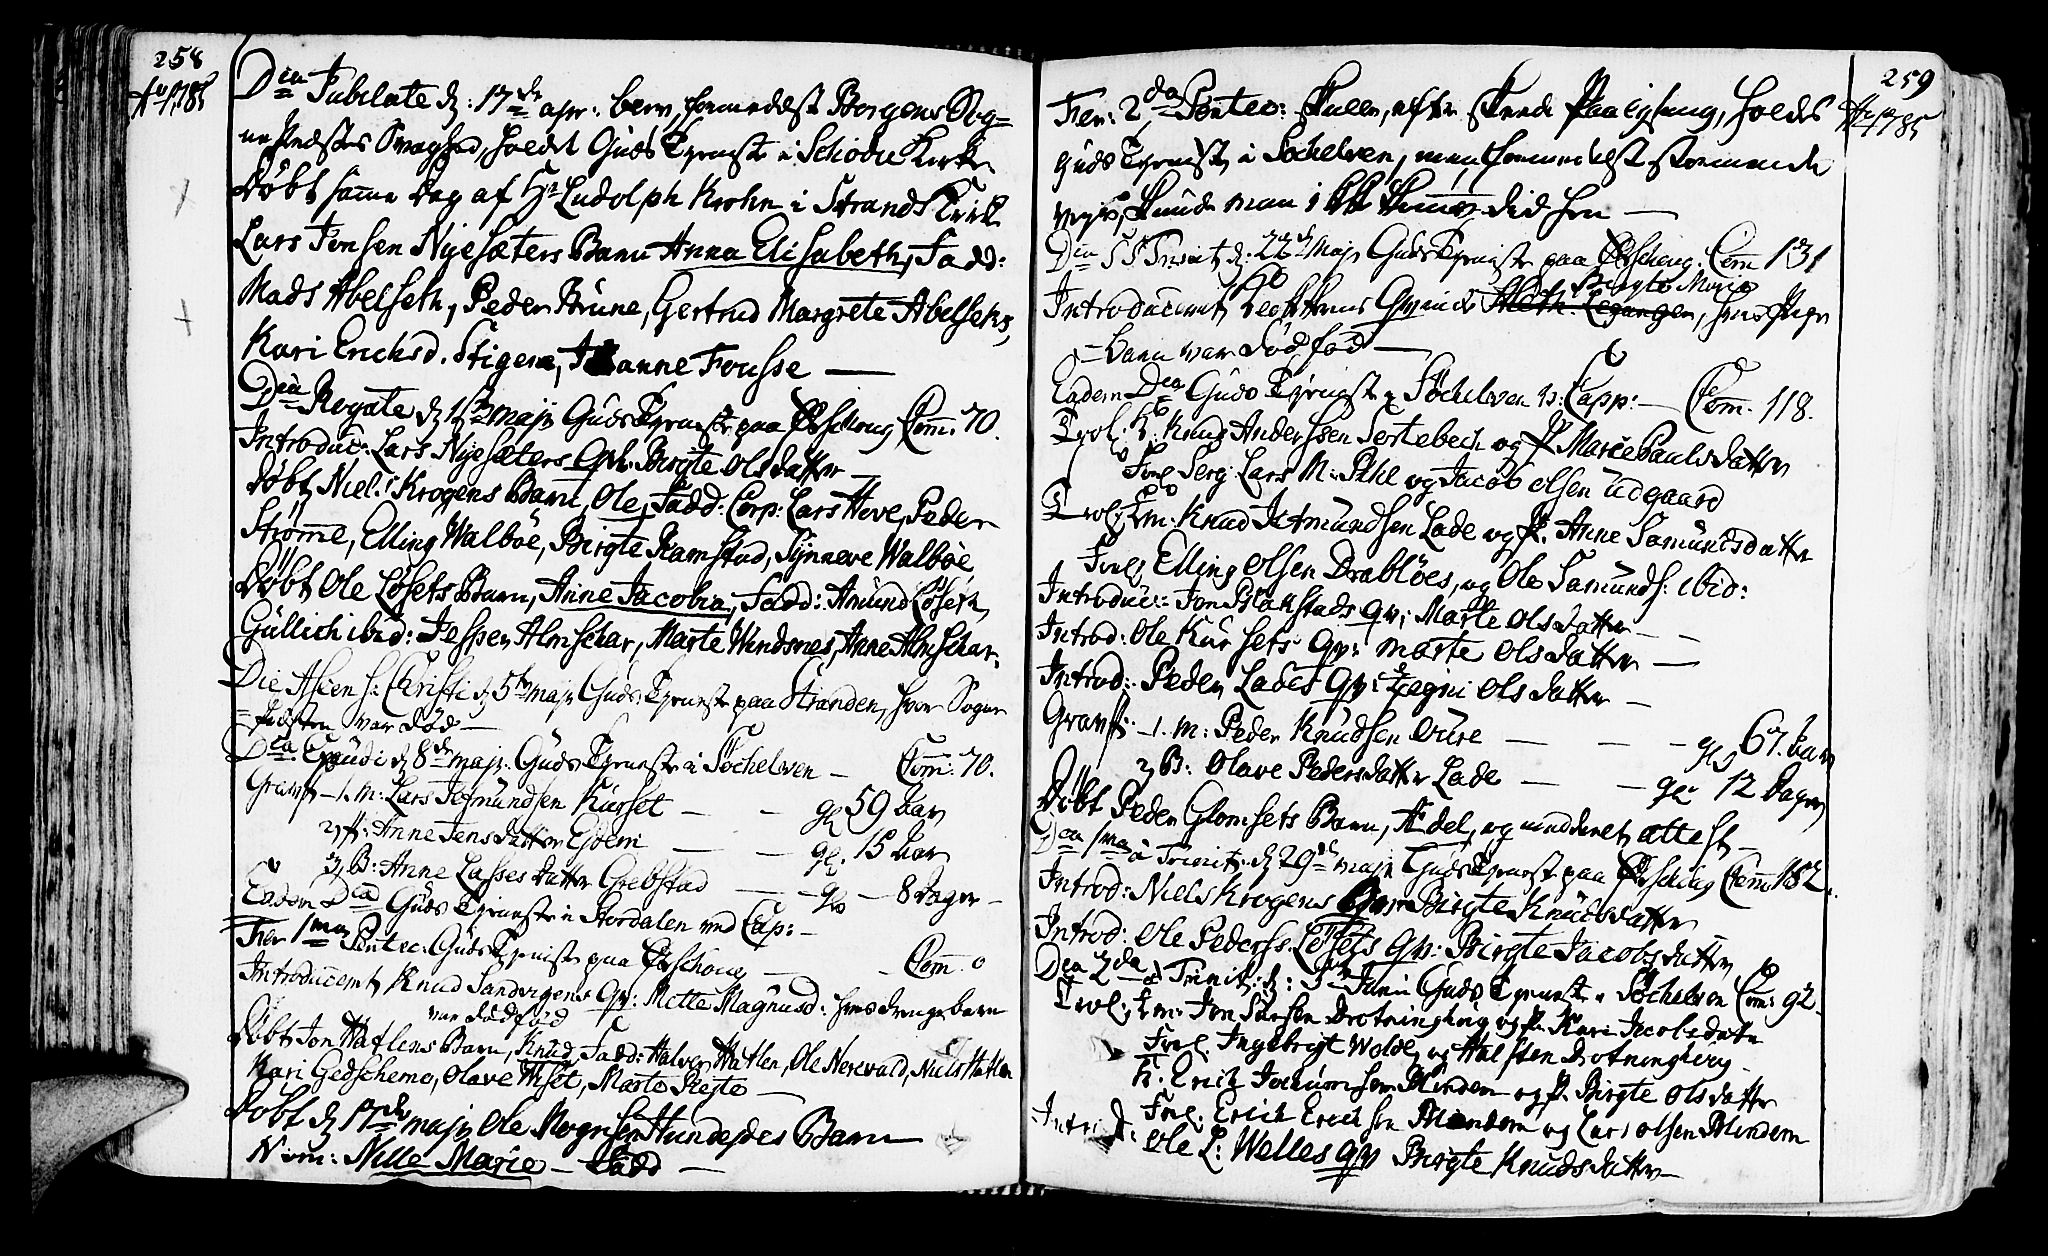 258
Ao 1785
Dca Jubilate d: 17de apr: blev, formedelst Borgens Sog=
nepræstes Svaghed, holdt Guds Tjeneste i Schodie Kirke
Døbt samme Dag af Hr Ludolph Krohn i Strands Kirke
Lars Jonsen Nysæters Barn Anna Elisabeth, Fadd:
Mads Abelseth, Peder Brune, Gertrud Margrete Abelseth,
Kari Ericksd. Stigen, Johanne Fousse —
Dca Rogate d 1ste majj Guds Tjeneste paa Ørschoug Com: 70.
Introduc: Lars Nysæters Qv: Birgte Olsdatter —
Døbt Niels Krogens Barn, Ole, Fadd: Corp: Lars Hove, Peder
Strømme, Elling Walbøe, Birgte Ramstad, Synneve Walbøe
Døbt Ole Løsets Barn, Anne Jacobia, Fadd: Amund Løseth,
Gullich ibid: Jesper Almschar, Marte Windsnes, Anne Almschar.
Die Ascens: Christi d 5te majj Guds Tjeneste paa Stranden, hvor Sogne
=præsten var død —
Dca Exaudi d 8de majj. Guds Tjeneste i Søchelven — Com: 70.
Gravf: — 1. M: Lars Jogmundsen Kurset — — gl 59 Aar
2, F: Anne Jensdatter Gjoen — — gl. 15 Aar
3, B: Anne Lassesdatter Grebstad — — gl — 8 Dage —
Eadem Dca Guds Tjeneste i Stordalen ved Cap: —
Fer 1ma Pentec: Guds Tjeneste paa Ørschoug — — Com. 0
Introducent, Knud Sandvigens Qv: Mette Magnusd: hvis drengebarn
var dødfød
Døbt Jon Hatlens Barn, Knud, Fadd: Halver Hatlen, Ole Nerevald, Niels Hatlen
Kari Gedschemo, Olave Wiset, Marte Rejte —
Døbt d 17de majj Ole Mogensen Hundejdes Barn
Nom: Nille Marie — Fadd —
259
Ao 1785
Fer: 2da Pentec: Skulle, efter skeede Paalysning, holdes
Guds Tjeneste i Søchelven, men formedelst stormende
vejr, kunde man ikke komme did hen —
Dca SS Trinit d: 22de Majj Guds Tjeneste paa Ørschoug. Com 131
Birgte Marie
Introducent, Qvinde, hvis Pige
=barn var dødfød —
Eadem Dca Guds Tjeneste i Søchelven v: Capp: — Com. 118.
Trol: K: Knud Anderssen Sortebech og P. Marie Paulsdatter
Forl. Serg: Lars M: Pihl og Jacob Olsen Udgaard
Trol: Em: Knud Jetmundsen Lade og P. Anne Samundsdatter
Forl. Elling Olsen Drabløes, og Ole Samunds: ibid:
Introduc: Jon Blakstads Qv: Marte Olsdatter —
Introd: Ole Kursets Qv: Marte Olsdatter —
Introd: Peder Lades Qv: Jegni Olsdatter —
Gravf: — 1. M: Peder Knudsen Oure — — — gl 67. Aar
2, B: Olave Pedersdatter Lade — — gl: 12 Dage
Døbt Peder Glomsets Barn, Adel, og meddeelt attest —
Dca 1ma à Trinit: d 29de majj Guds Tjeneste paa Ørschoug Com 182.
Introd: Niels Krogens Qv: Birgte Knudsdatter
Introd: Ole Peders: Løsets Qv: Birgte Jacobsdatter
Dca 2da à Trinit: d: 5te Junii Guds Tjeneste i Søchelven Com: 92
Trol: Em: Jon Larsen Drotninghoug og P. Kari Jacobsdatter
Forl. Ingebrigt Wolde, og Halsten Drotninghoug —
K: Erich Jochumsen Blindem og P. Birgte Olsdatter
Forl. Erich Erichsen Blindem og Lars Olsen Blindem
Introd: Ole L: Welles Qv Birgte Knudsdatter —